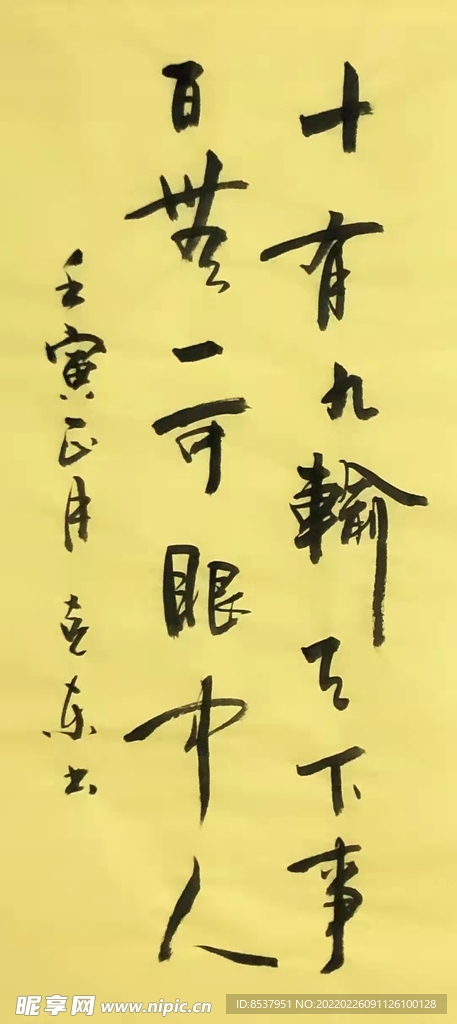 十有九輸天下事
百無一可眼中人
壬寅正月 东书
昵享网 www.nipic.cn
ID:8537951 NO:20220226091126100128